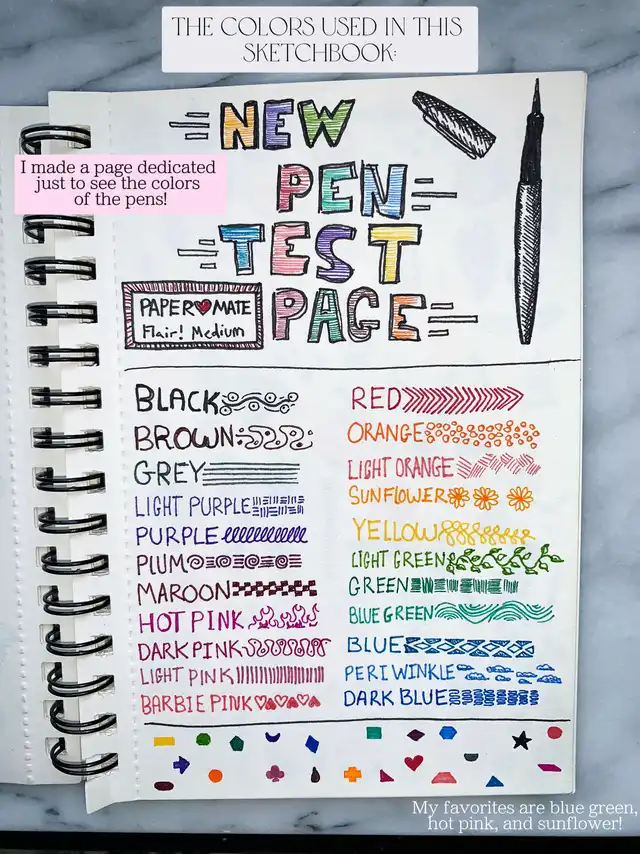 THE COLORS USED IN THIS
SKETCHBOOK:
NEW
PEN
TEST
PAGE
I made a page dedicated
just to see the colors
of the pens!
PAPER♥MATE
Flair! Medium
BLACK
BROWN
GREY
LIGHT PURPLE
PURPLE
PLUM
MAROON
HOT PINK
DARK PINK
LIGHT PINK
BARBIE PINK
RED
ORANGE
LIGHT ORANGE
SUNFLOWER
YELLOW
LIGHT GREEN
GREEN
BLUE GREEN
BLUE
PERIWINKLE
DARK BLUE
My favorites are blue green,
hot pink, and sunflower!